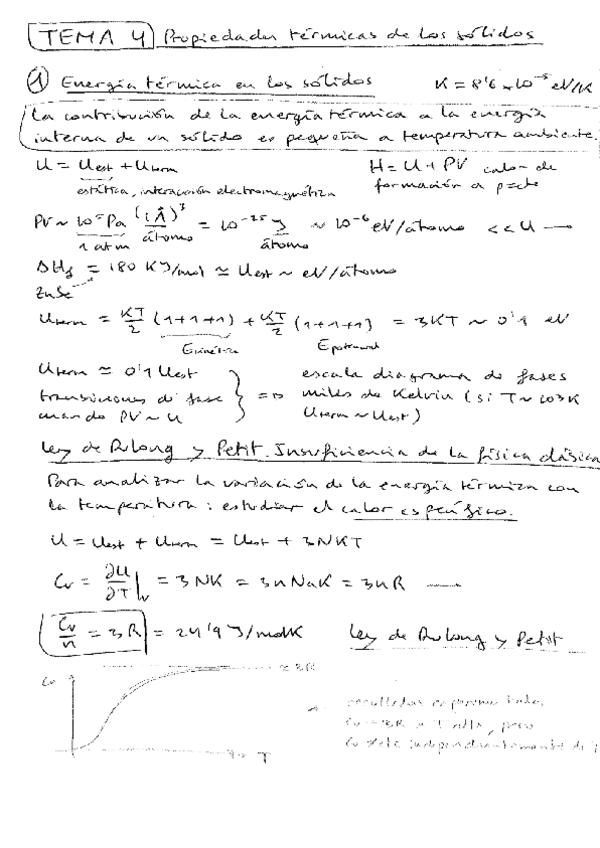 TEMA 4 Propiedades térmicas de los sólidos
① Energía térmica en los sólidos K = 8'6 × 10⁻⁵ eV/K
La contribución de la energía térmica a la energía
interna de un sólido es pequeña a temperatura ambiente.
U = Uest + Uterm H = U + PV calor de
estática, interacción electromagnética formación a p=cte
PV ~ 10⁵ Pa (1Å)³/átomo = 10⁻²⁵ J/átomo ~ 10⁻⁶ eV/átomo << U —
1 atm
ΔHf = 180 KJ/mol ≃ Uest ~ eV/átomo
ZnSe
Uterm = KT/2 (1+1+1) + KT/2 (1+1+1) = 3KT ~ 0'1 eV
Ecinética Epotencial
Uterm ≃ 0'1 Uest escala diagrama de fases
transiciones de fase } => miles de Kelvin (si T~10³K
cuando PV ~ U Uterm ~ Uest)
Ley de Dulong y Petit. Insuficiencia de la física clásica
Para analizar la variación de la energía térmica con
la temperatura: estudiar el calor específico.
U = Uest + Uterm = Uest + 3NKT
Cv = ∂U/∂T|v = 3NK = 3nNaK = 3nR —
Cv/n = 3R = 24'9 J/molK Ley de Dulong y Petit
Cv ≃ 3R
resultados experimentales
Cv → 3R a T alta, pero
Cv independientemente de
T